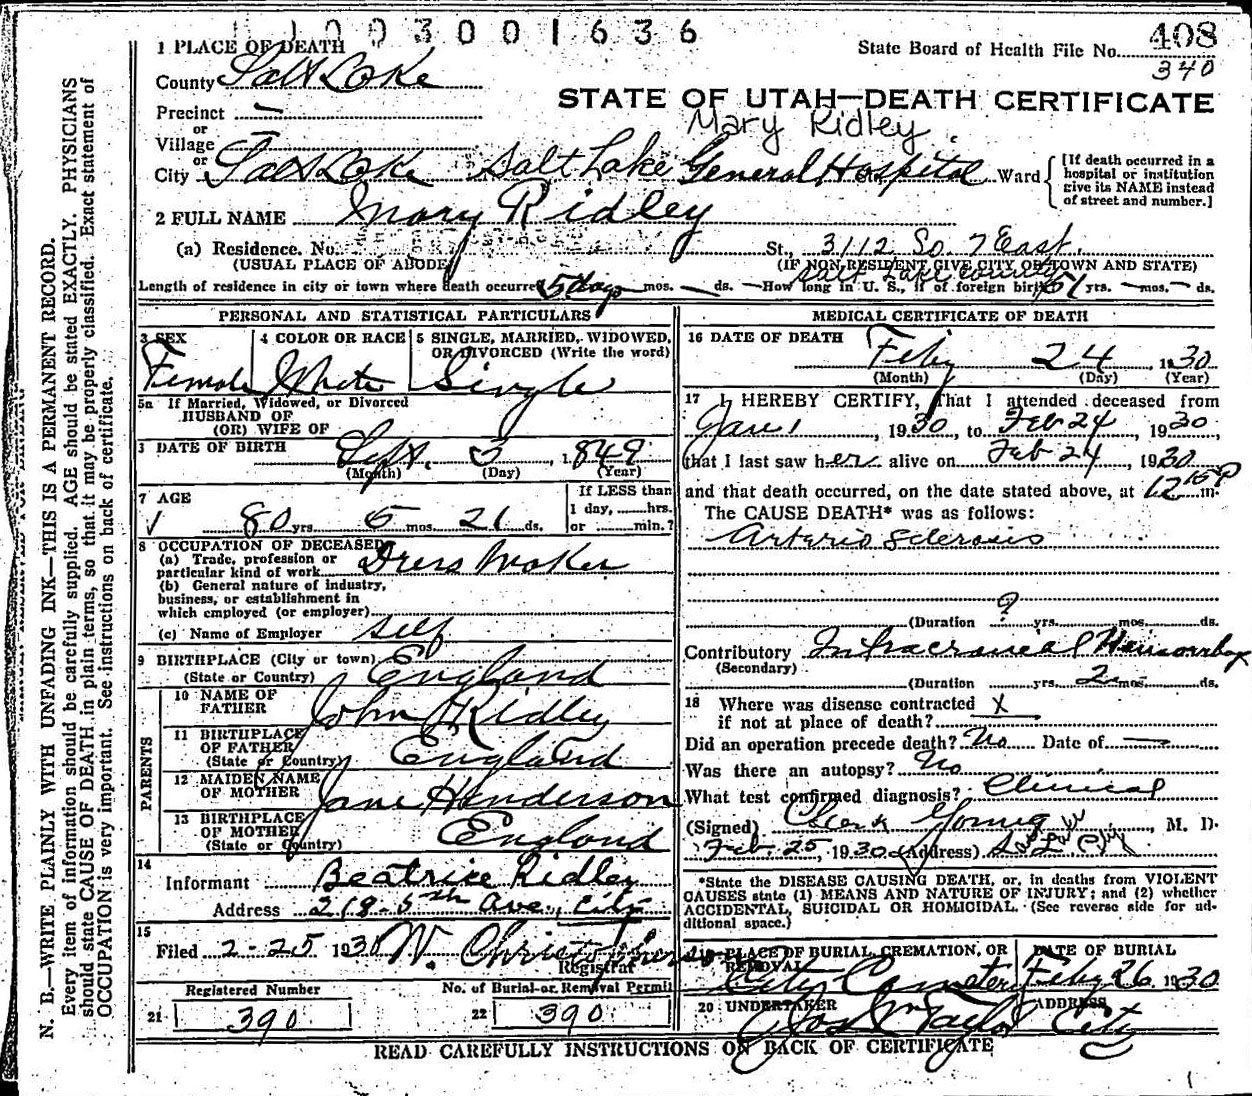 1003001636
408
State Board of Health File No.
340
1 PLACE OF DEATH
County Salt Lake
STATE OF UTAH—DEATH CERTIFICATE
Precinct —
Mary Ridley
or
Village —
or
City Salt Lake Salt Lake General Hospital Ward
[If death occurred in a hospital or institution give its NAME instead of street and number.]
2 FULL NAME Mary Ridley
(a) Residence. No. St., 3112 So. 7 East.
(USUAL PLACE OF ABODE) (IF NON-RESIDENT GIVE CITY OR TOWN AND STATE)
Salt Lake County
Length of residence in city or town where death occurred 55 days mos. — ds. — How long in U. S., if of foreign birth? 51 yrs. — mos. — ds.
PERSONAL AND STATISTICAL PARTICULARS
3 SEX
Female
4 COLOR OR RACE
White
5 SINGLE, MARRIED, WIDOWED, OR DIVORCED (Write the word)
Single
5a If Married, Widowed, or Divorced
HUSBAND OF
(OR) WIFE OF
DATE OF BIRTH Sept. 3, 1849
(Month) (Day) (Year)
7 AGE
80 yrs. 5 mos. 21 ds.
If LESS than
1 day, hrs.
or min.?
8 OCCUPATION OF DECEASED
(a) Trade, profession or
particular kind of work Dress Maker
(b) General nature of industry,
business, or establishment in
which employed (or employer)
(c) Name of Employer Self
9 BIRTHPLACE (City or town)
(State or Country) England
PARENTS
10 NAME OF FATHER John Ridley
11 BIRTHPLACE OF FATHER
(State or Country) England
12 MAIDEN NAME OF MOTHER Jane Henderson
13 BIRTHPLACE OF MOTHER
(State or Country) England
14
Informant Beatrice Ridley
Address 218-5th Ave., City
15
Filed 2-25 1930 W. Christopherson
Registrar
Registered Number
21 390
No. of Burial or Removal Permit
22 390
MEDICAL CERTIFICATE OF DEATH
16 DATE OF DEATH
Feby 24, 1930
(Month) (Day) (Year)
17 I HEREBY CERTIFY, That I attended deceased from
Jan 1, 1930, to Feb 24, 1930,
that I last saw her alive on Feb 24, 1930.
and that death occurred, on the date stated above, at 12 15 P m.
The CAUSE DEATH* was as follows:
Arterio Sclerosis
(Duration ? yrs. mos. ds.
Contributory Intracranial Hemorrhage
(Secondary)
(Duration yrs. 2 mos. ds.
18 Where was disease contracted
if not at place of death? X
Did an operation precede death? No Date of —
Was there an autopsy? No
What test confirmed diagnosis? Clinical
(Signed) Clark Young, M. D.
Feb. 25, 1930 (Address) Salt Lake City
*State the DISEASE CAUSING DEATH, or, in deaths from VIOLENT
CAUSES state (1) MEANS AND NATURE OF INJURY; and (2) whether
ACCIDENTAL, SUICIDAL OR HOMICIDAL. (See reverse side for ad-
ditional space.)
19 PLACE OF BURIAL, CREMATION, OR REMOVAL
City Cemetery
DATE OF BURIAL
Feby 26, 1930
20 UNDERTAKER
Taylor
ADDRESS
City
READ CAREFULLY INSTRUCTIONS ON BACK OF CERTIFICATE
N. B.—WRITE PLAINLY WITH UNFADING INK—THIS IS A PERMANENT RECORD.
Every item of information should be carefully supplied. AGE should be stated EXACTLY. PHYSICIANS
should state CAUSE OF DEATH in plain terms, so that it may be properly classified. Exact statement of
OCCUPATION is very important. See instructions on back of certificate.